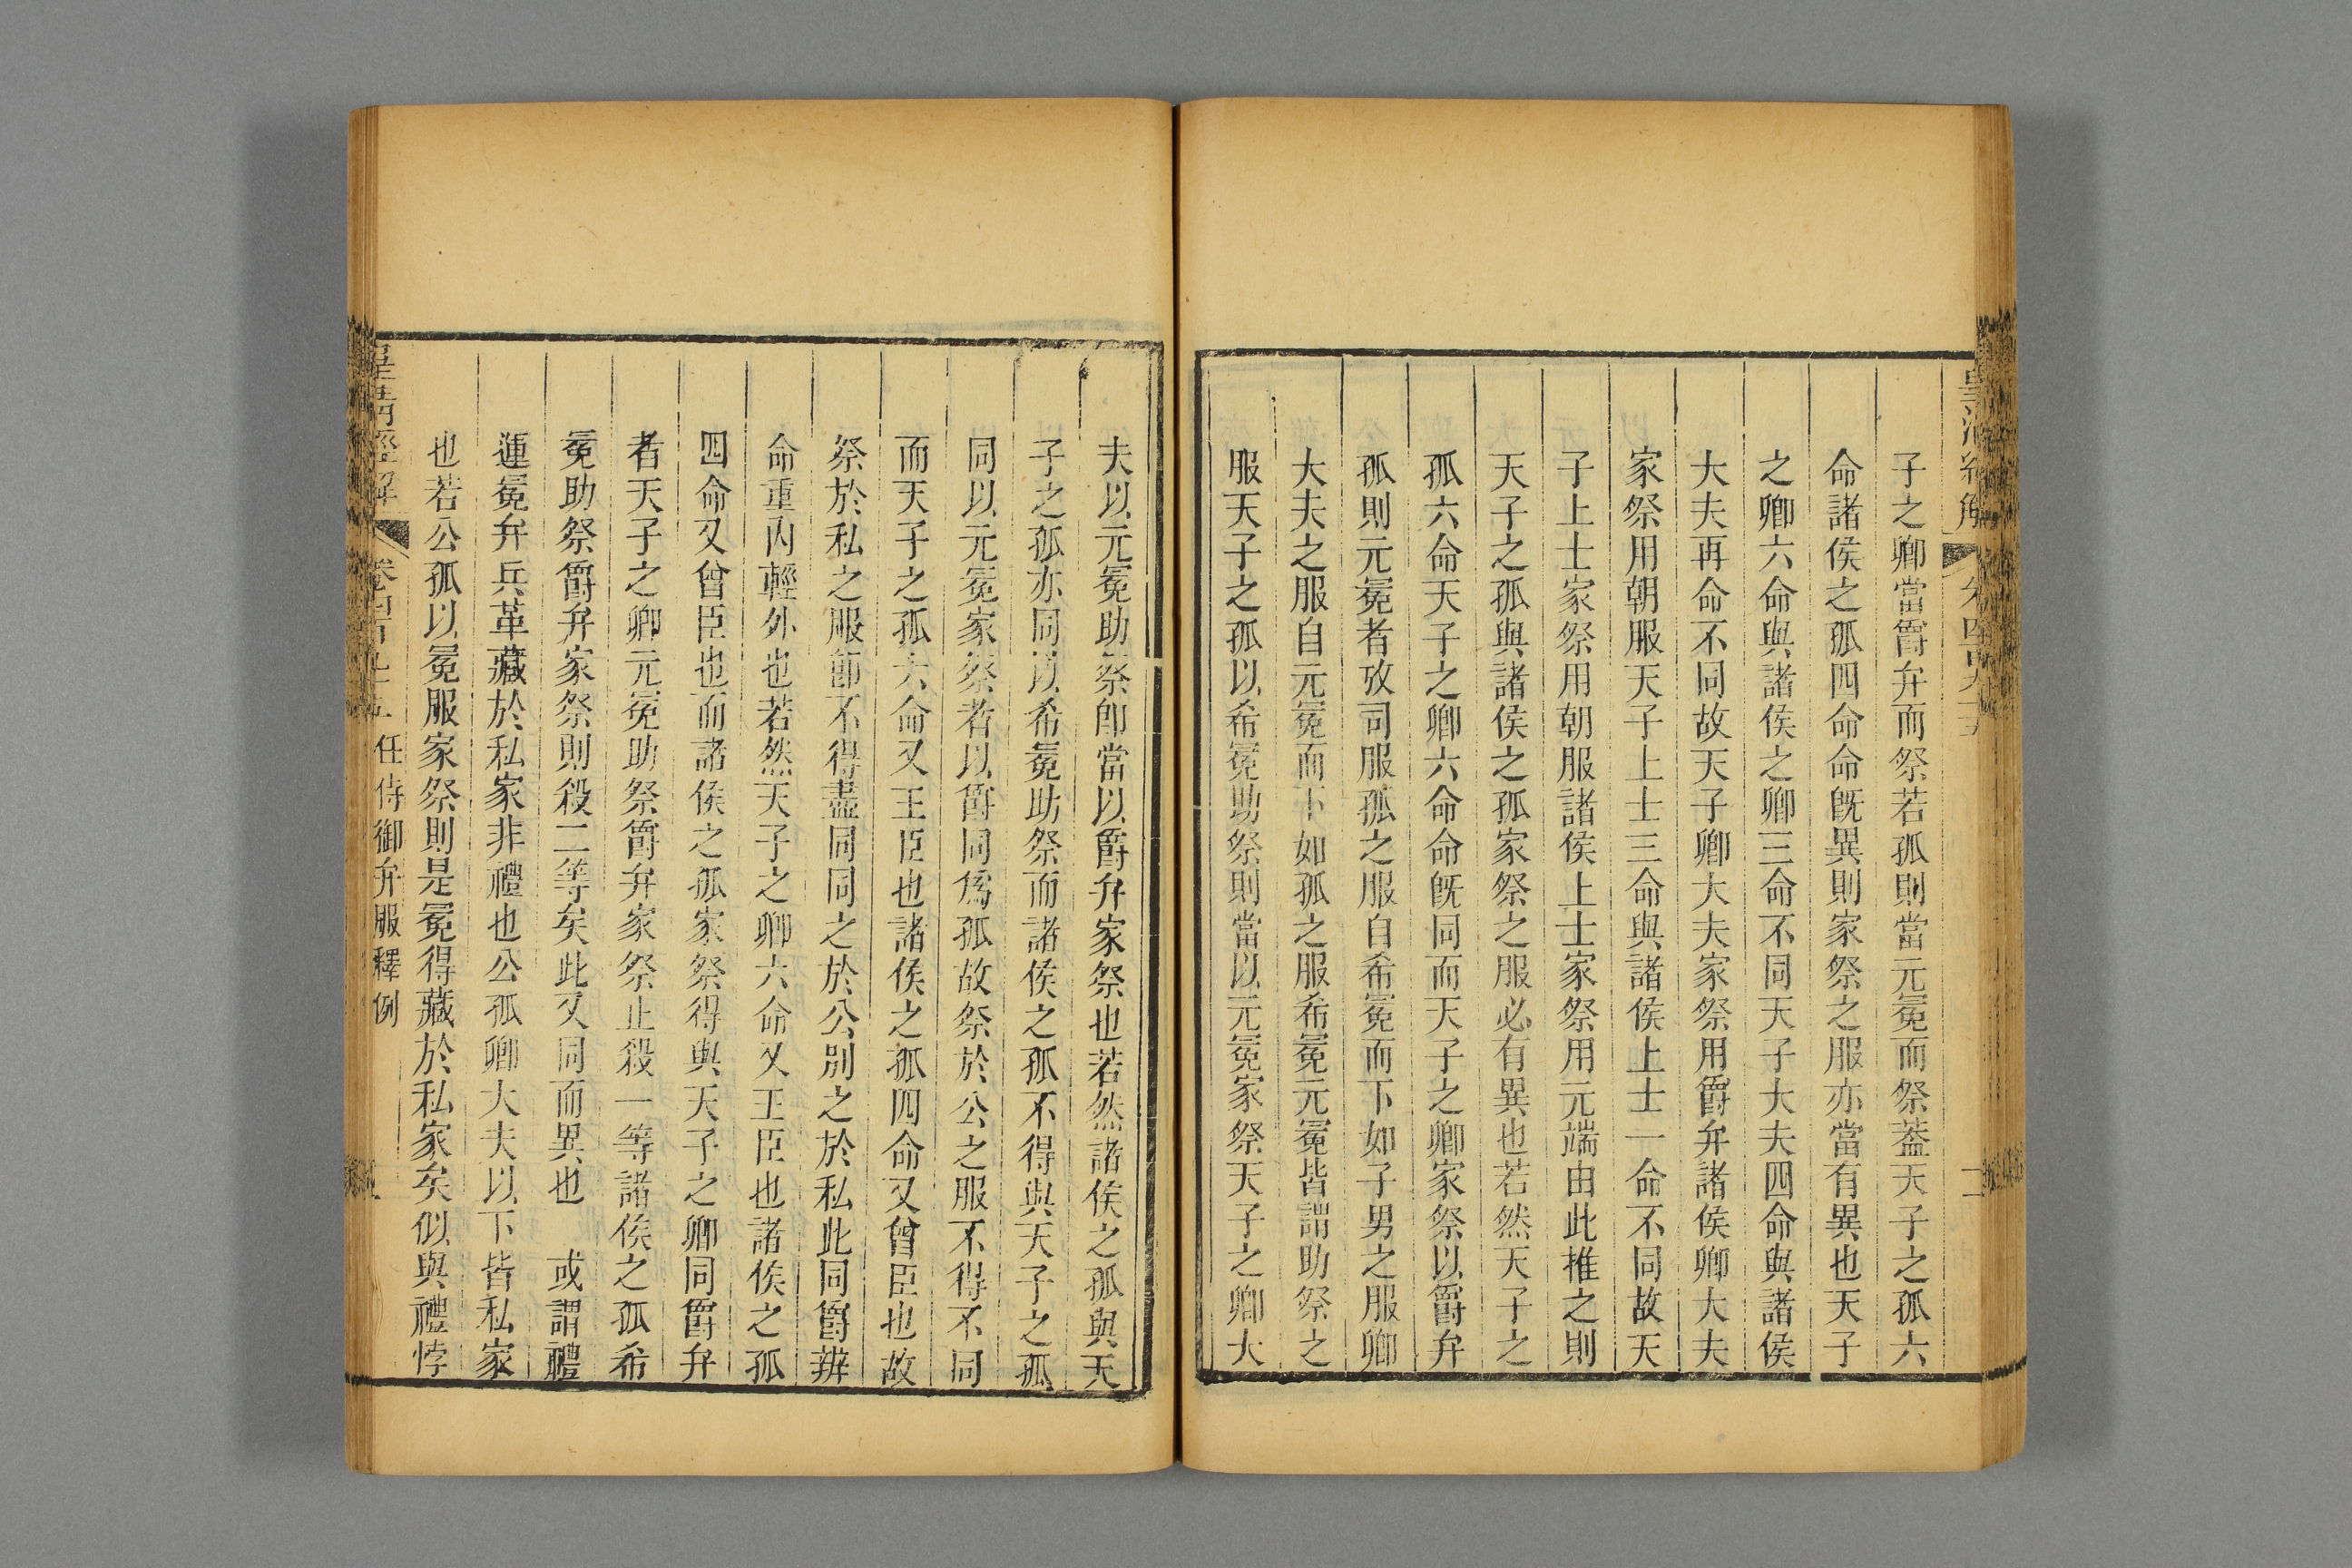 子之卿當爵弁而祭若孤則當元冕而祭葢天子之孤六
命諸侯之孤四命命旣異則家祭之服亦當有異也天子
之卿六命與諸侯之卿三命不同天子大夫四命與諸侯
大夫再命不同故天子卿大夫家祭用爵弁諸侯卿大夫
家祭用朝服天子上士三命與諸侯上士一命不同故天
子上士家祭用朝服諸侯上士家祭用元端由此推之則
天子之孤與諸侯之孤家祭之服必有異也若然天子之
孤六命天子之卿六命命旣同而天子之卿家祭以爵弁
孤則元冕者攷司服孤之服自希冕而下如子男之服卿
大夫之服自元冕而下如孤之服希冕元冕皆謂助祭之
服天子之孤以希冕助祭則當以元冕家祭天子之卿大
夫以元冕助祭卽當以爵弁家祭也若然諸侯之孤與天
子之孤亦同以希冕助祭而諸侯之孤不得與天子之孤
同以元冕家祭者以爵同爲孤故祭於公之服不得不同
而天子之孤六命又王臣也諸侯之孤四命又曾臣也故
祭於私之服節不得盡同同之於公別之於私此同爵辨
命重內輕外也若然天子之卿六命又王臣也諸侯之孤
四命又曾臣也而諸侯之孤家祭得與天子之卿同爵弁
者天子之卿元冕助祭爵弁家祭止殺一等諸侯之孤希
冕助祭爵弁家祭則殺二等矣此又同而異也　或謂禮
運冕弁兵革藏於私家非禮也公孤卿大夫以下皆私家
也若公孤以冕服家祭則是冕得藏於私家矣似與禮悖
皇清經解　卷四百九十五　任侍御弁服釋例